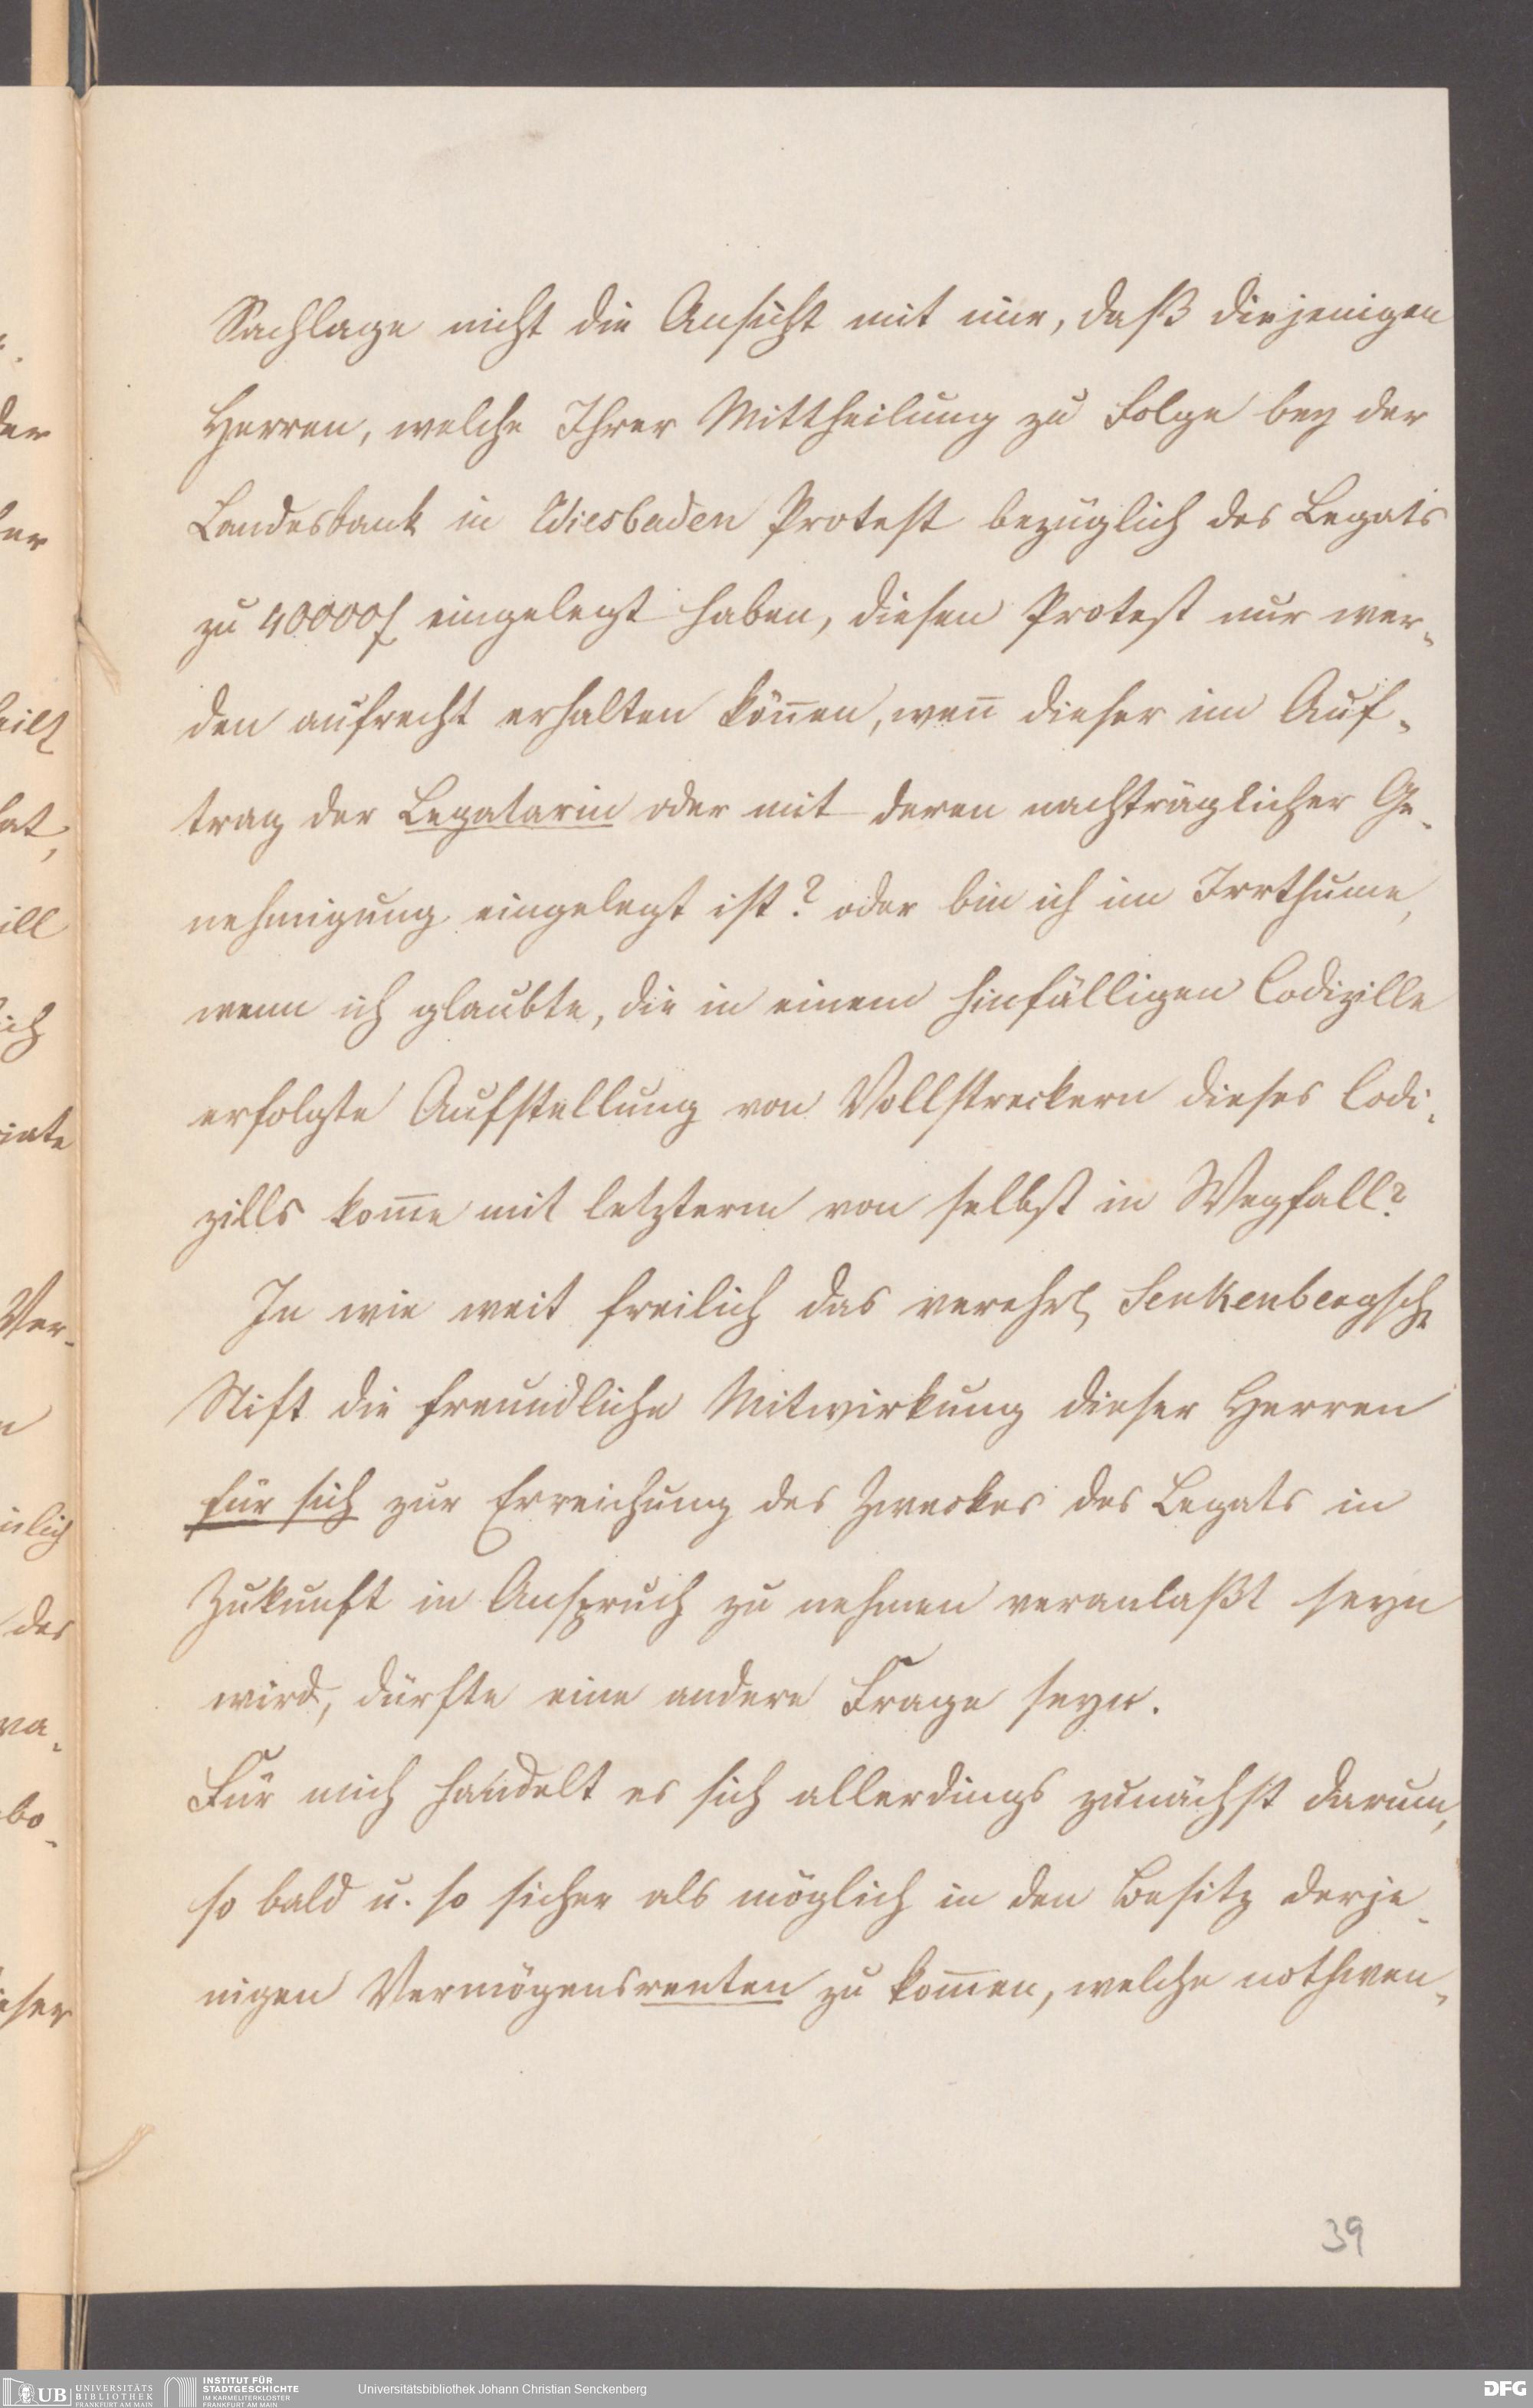 Sachlage nicht die Ansicht mit mir, daß diejenigen
Herren, welche Ihrer Mittheilung zu Folge bey der
Landesbank in Wiesbaden Protest bezüglich des Legats
zu 40000f eingelegt haben, diesen Protest nur wer-
den aufrecht erhalten können, wenn dieser im Auf-
trag der Legatarin oder mit deren nachträglicher Ge-
nehmigung eingelegt ist? oder bin ich im Irrthume,
wenn ich glaubte, die in einem hinfälligen Codizille
erfolgte Aufstellung von Vollstreckern dieses Codi-
zills komme mit letzterm von selbst in Wegfall?
In wie weit freilich das verehrl. Senkenbergsche
Stift die freundliche Mitwirkung dieser Herren
für sich zur Erreichung des Zweckes des Legats in
Zukunft in Anspruch zu nehmen veranlaßt seyn
wird, dürfte eine andere Frage seyn.
Für mich handelt es sich allerdings zunächst darum,
so bald u. so sicher als möglich in den Besitz derje-
nigen Vermögensrenten zu kommen, welche nothwen-
39
UB UNIVERSITÄTS BIBLIOTHEK FRANKFURT AM MAIN
INSTITUT FÜR STADTGESCHICHTE IM KARMELITERKLOSTER FRANKFURT AM MAIN
Universitätsbibliothek Johann Christian Senckenberg
DFG